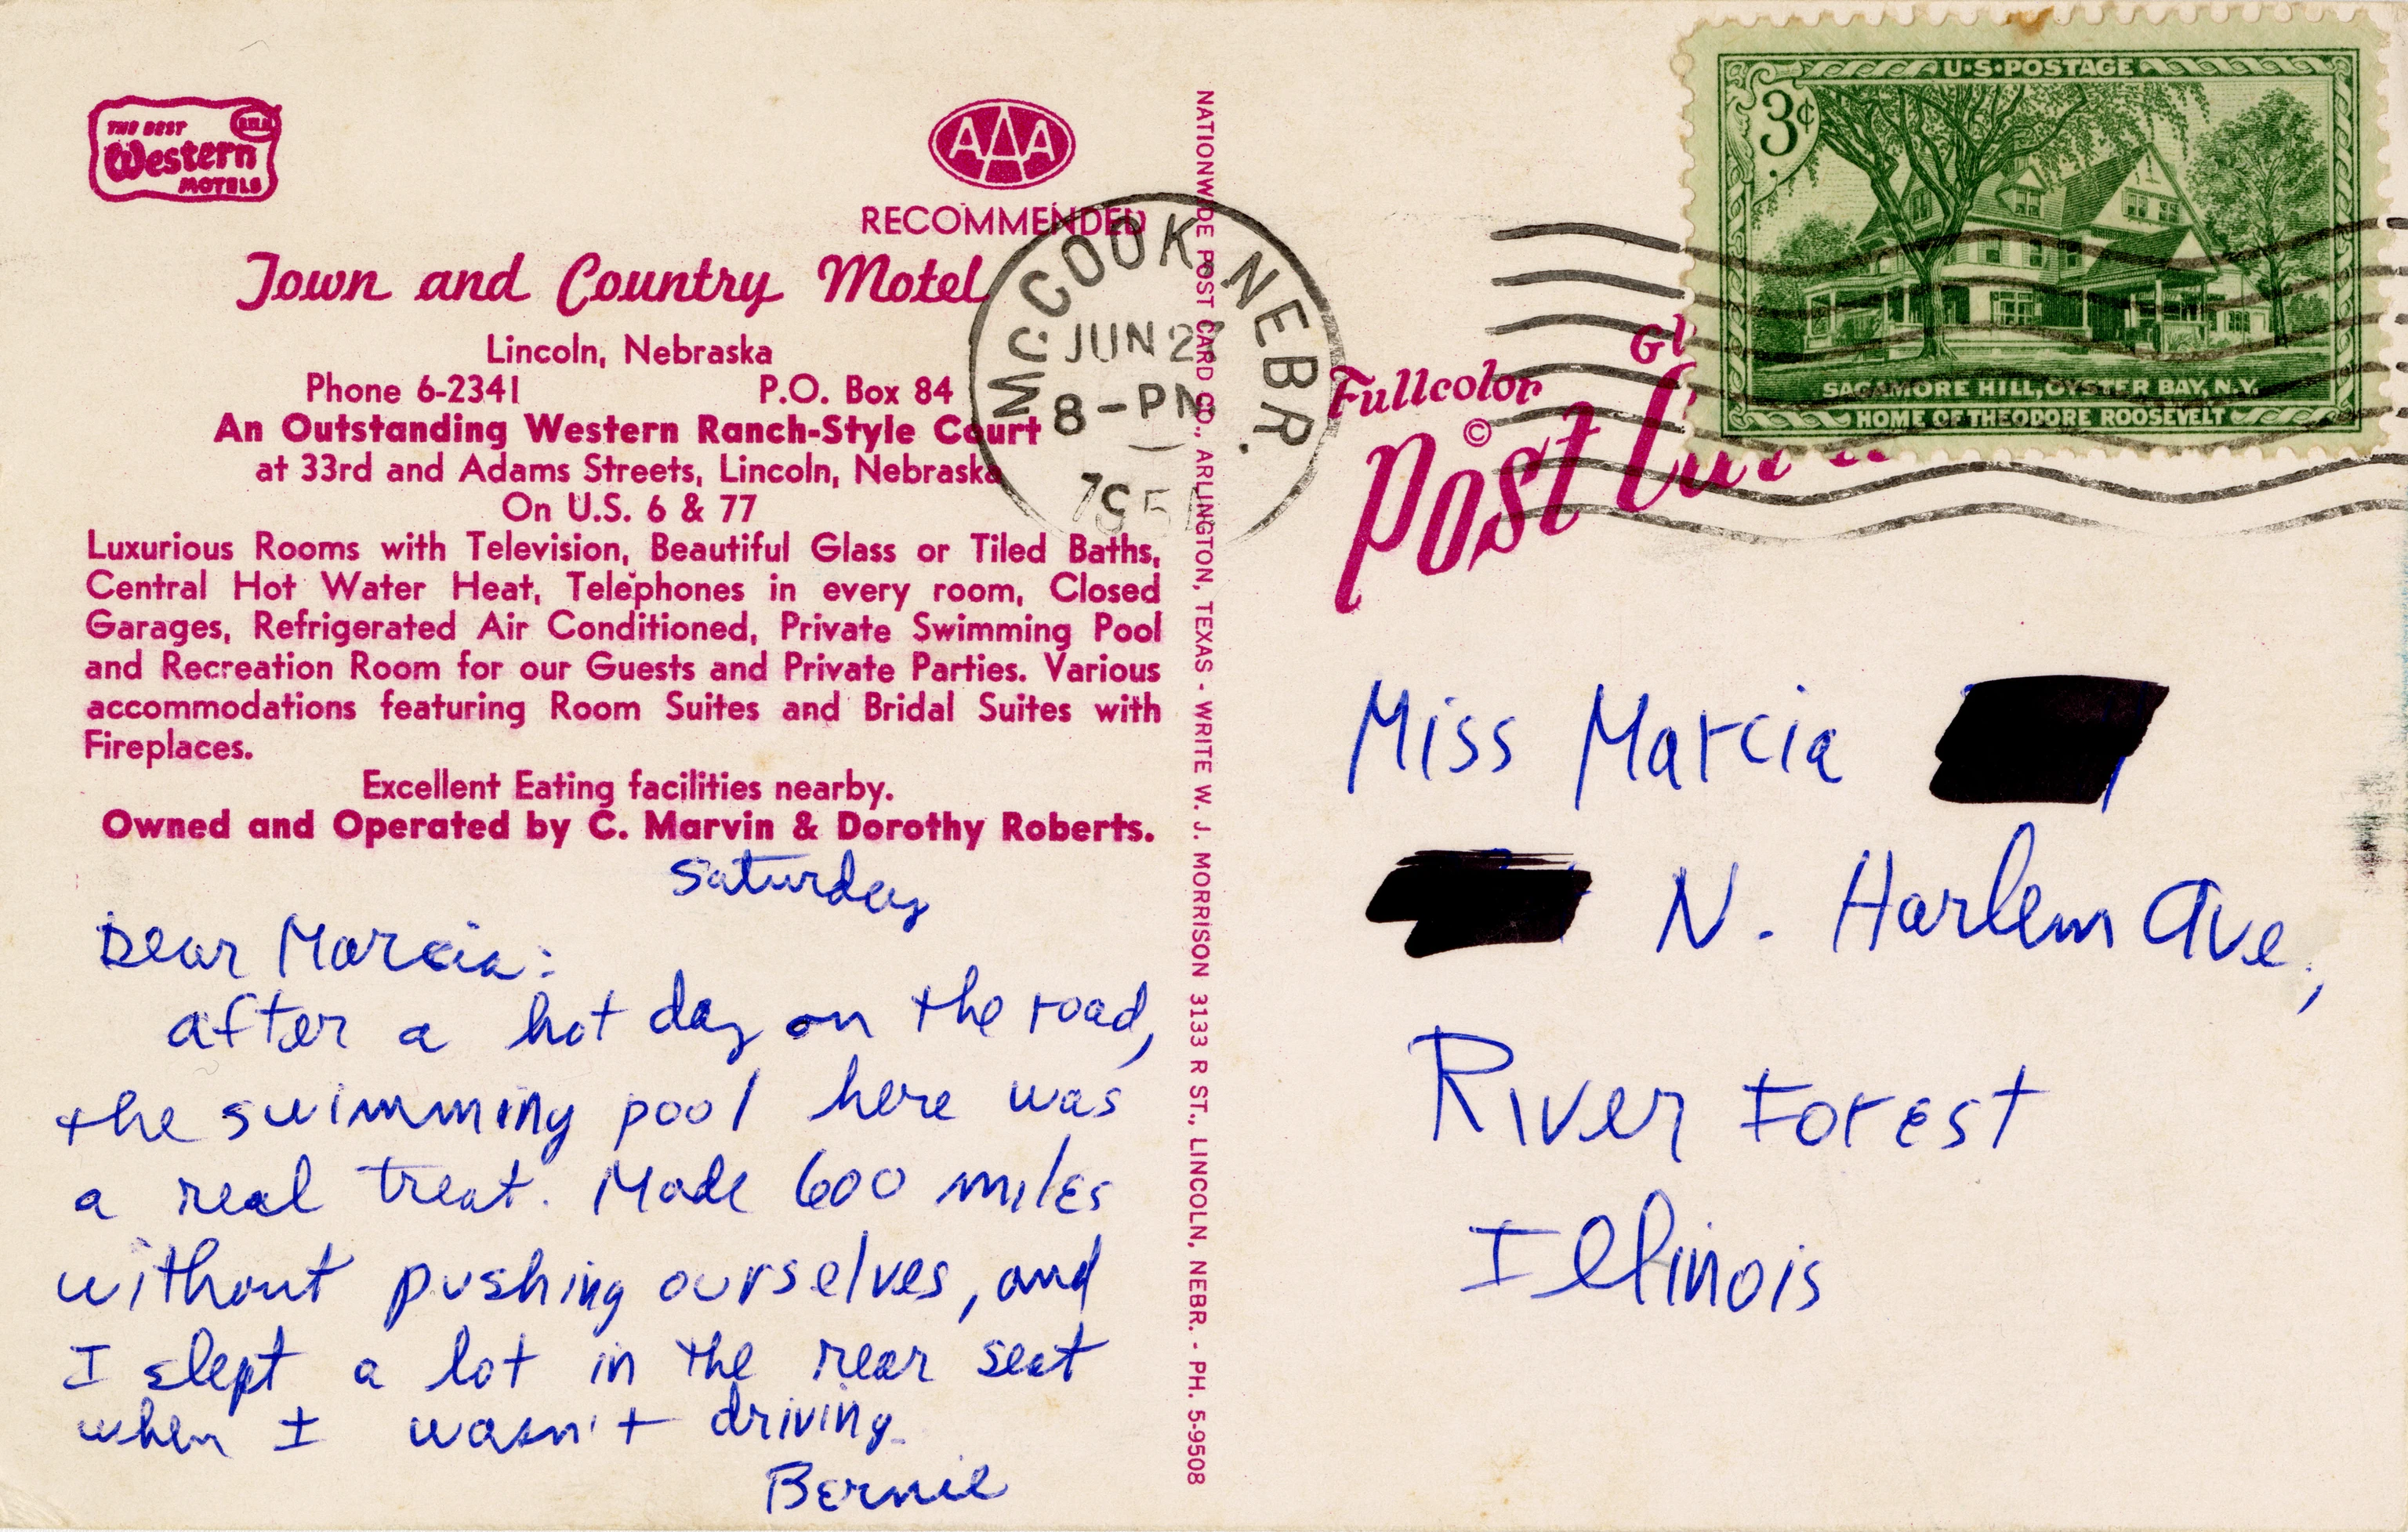 THE BEST
Western
MOTELS
AAA
RECOMMENDED
Town and Country Motel
Lincoln, Nebraska
Phone 6-2341 P.O. Box 84
An Outstanding Western Ranch-Style Court
at 33rd and Adams Streets, Lincoln, Nebraska
On U.S. 6 & 77
Luxurious Rooms with Television, Beautiful Glass or Tiled Baths,
Central Hot Water Heat, Telephones in every room, Closed
Garages, Refrigerated Air Conditioned, Private Swimming Pool
and Recreation Room for our Guests and Private Parties. Various
accommodations featuring Room Suites and Bridal Suites with
Fireplaces.
Excellent Eating facilities nearby.
Owned and Operated by C. Marvin & Dorothy Roberts.
Saturday
Dear Marcia:
after a hot day on the road,
the swimming pool here was
a real treat. Made 600 miles
without pushing ourselves, and
I slept a lot in the rear seat
when I wasn't driving.
Bernie
NATIONWIDE POST CARD CO., ARLINGTON, TEXAS - WRITE W. J. MORRISON 3133 R ST., LINCOLN, NEBR. - PH. 5-9508
MCCOOK, NEBR.
JUN 27
8-PM
U·S·POSTAGE
3¢
SAGAMORE HILL, OYSTER BAY, N.Y.
HOME OF THEODORE ROOSEVELT
Fullcolor
©
Post
Miss Marcia
N. Harlem Ave,
River Forest
Illinois